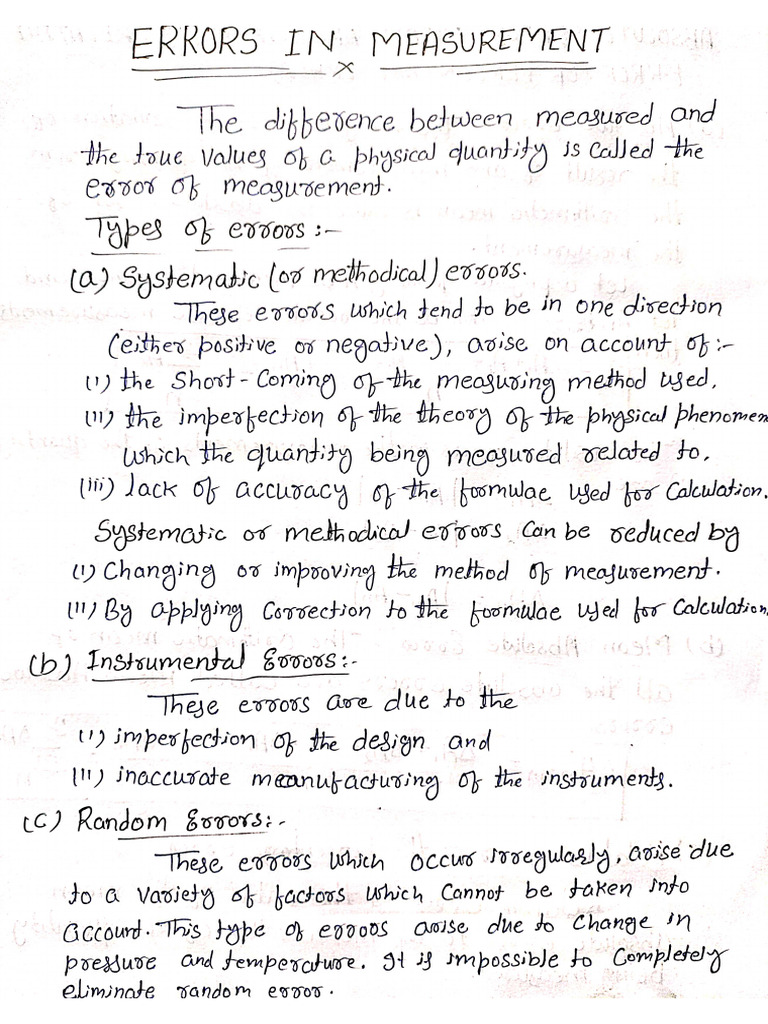 ERRORS IN MEASUREMENT
x
The difference between measured and
the true values of a physical quantity is called the
error of measurement.
Types of errors :-
(a) Systematic (or methodical) errors.
These errors which tend to be in one direction
(either positive or negative), arise on account of :-
(i) the short-coming of the measuring method used,
(ii) the imperfection of the theory of the physical phenomen
which the quantity being measured related to,
(iii) lack of accuracy of the formulae used for calculation.
Systematic or methodical errors can be reduced by
(i) Changing or improving the method of measurement.
(ii) By applying correction to the formulae used for calculation
(b) Instrumental Errors:-
These errors are due to the
(i) imperfection of the design and
(ii) inaccurate manufacturing of the instruments.
(c) Random Errors:-
These errors which occur irregularly, arise due
to a variety of factors which cannot be taken into
account. This type of errors arise due to change in
pressure and temperature. It is impossible to completely
eliminate random error.